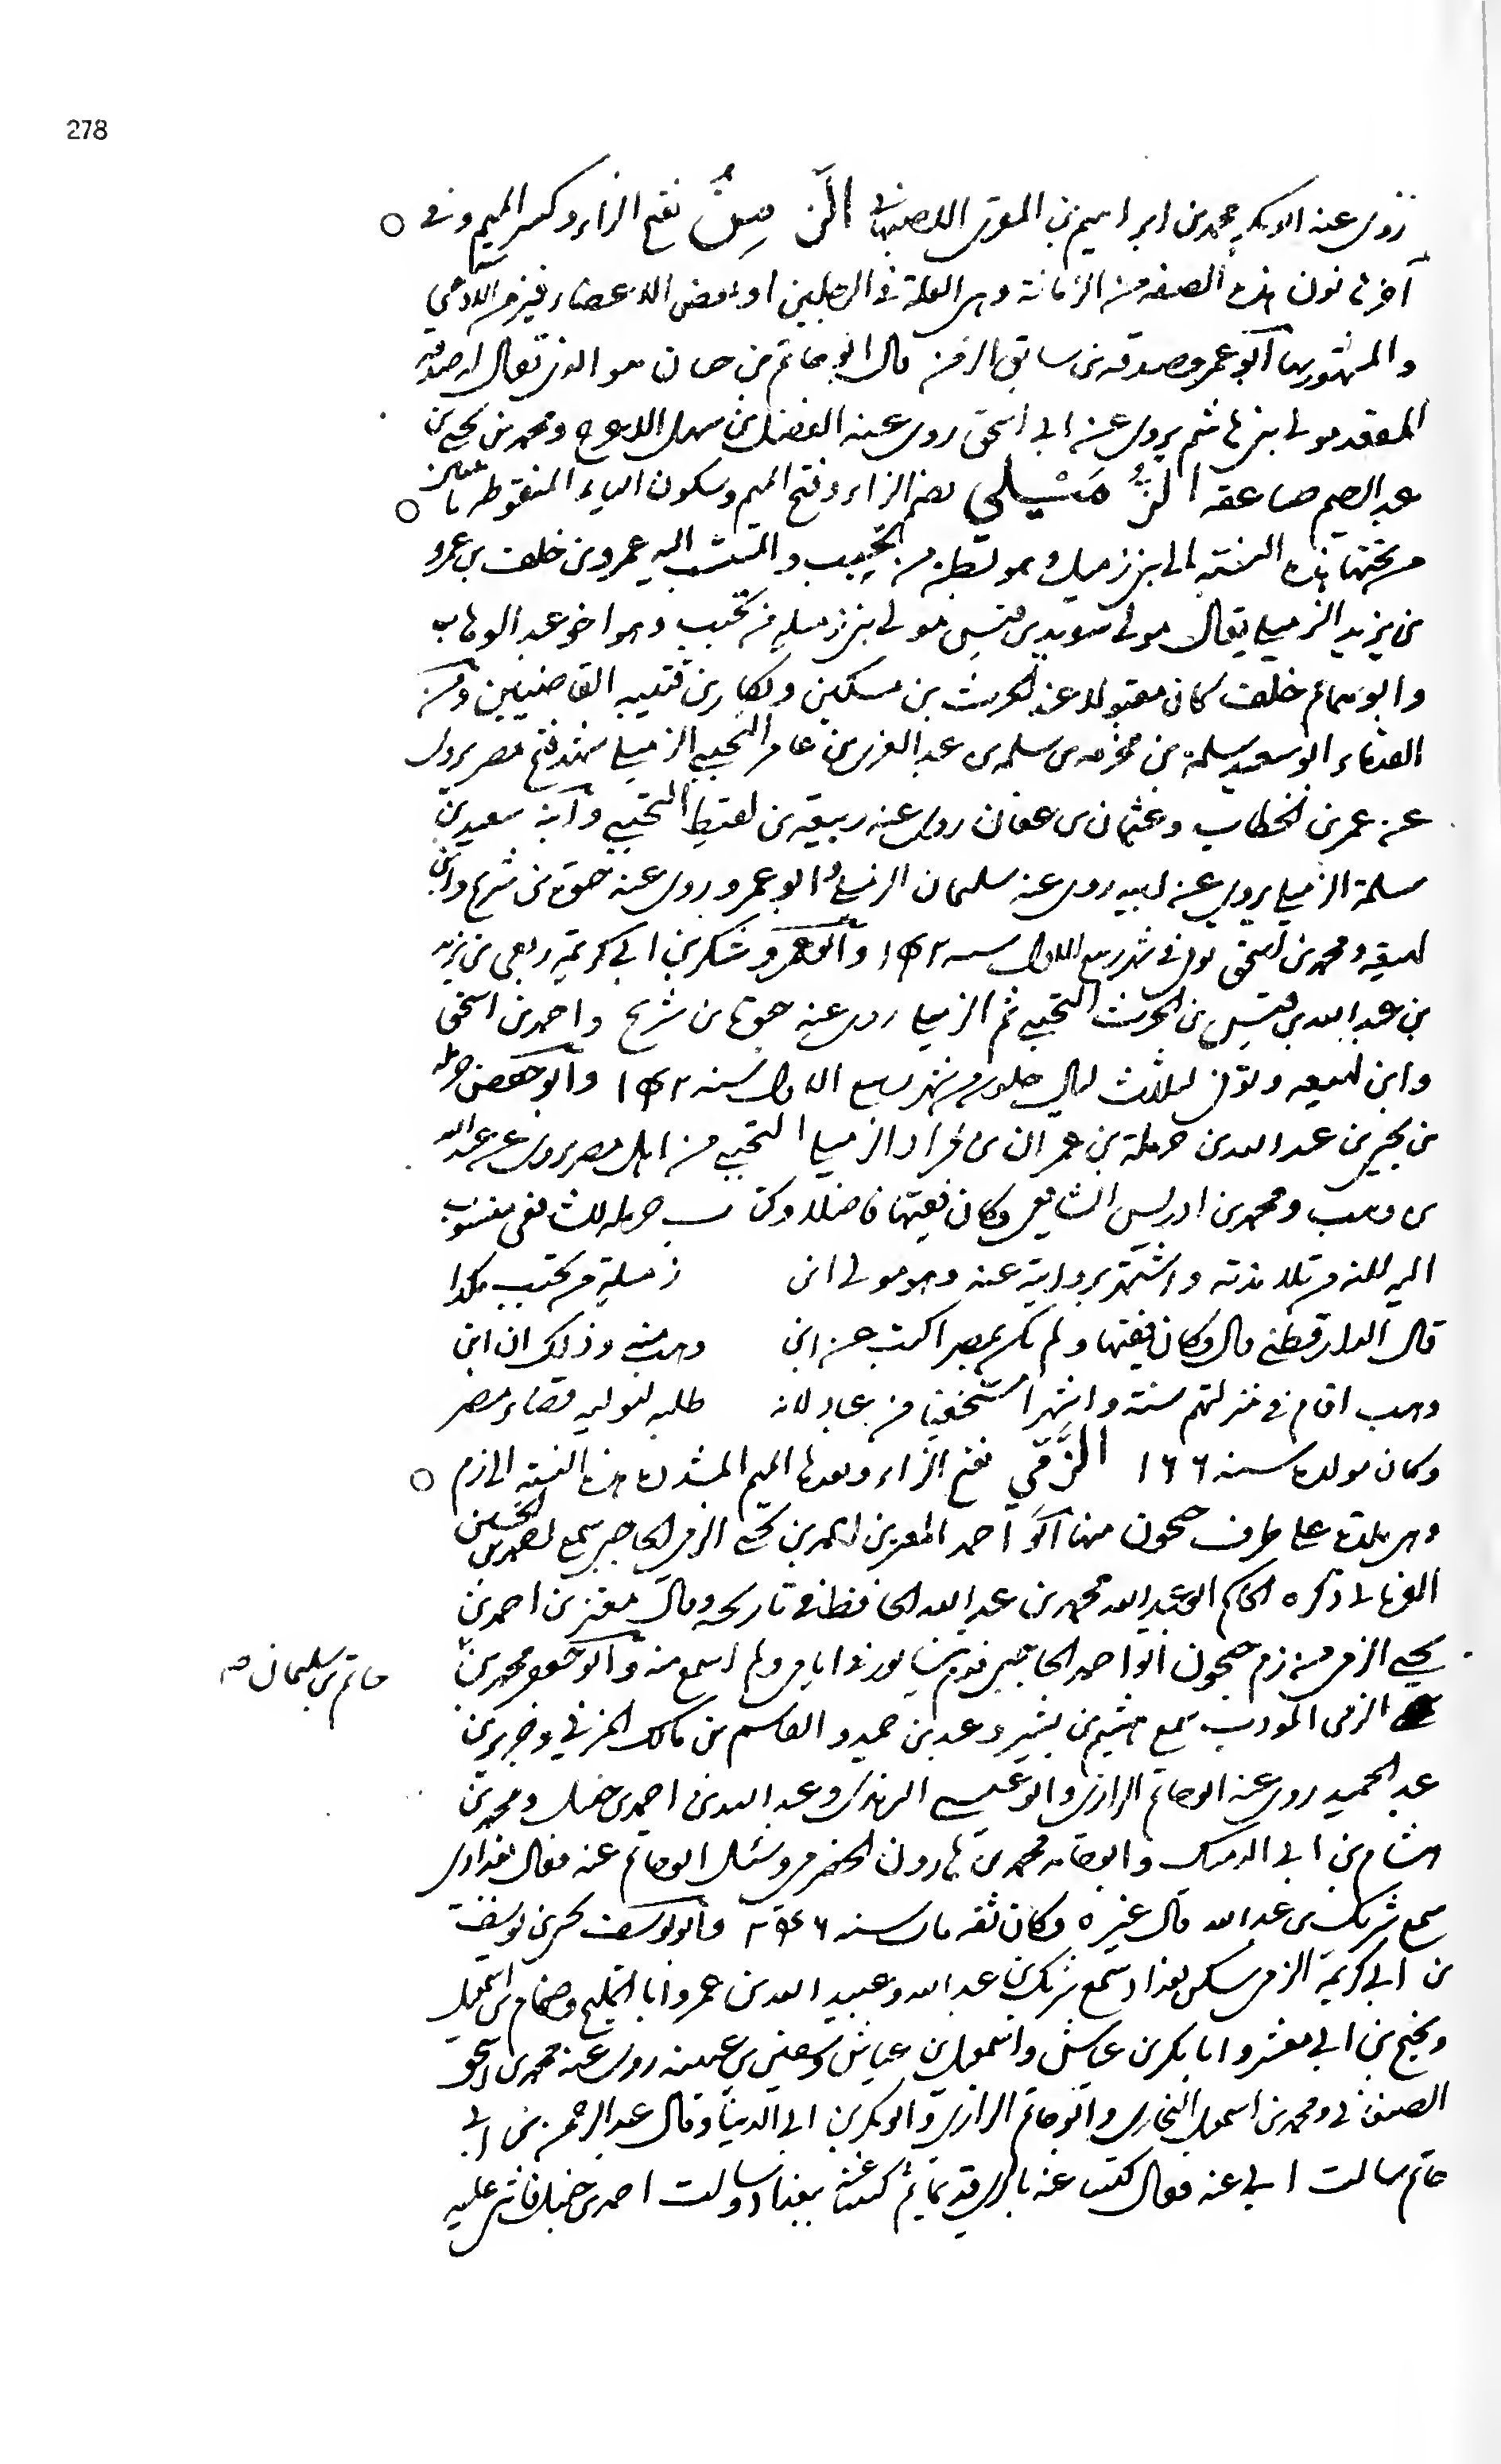 278
روى عنه ابو بكر محمد بن ابراهيم بن المقرى الاصبهانى الزَّمِنُ بفتح الزاء وكسر الميم وفى
آخرها نون هذه الصفة من الزمانة وهى العلة فى الرجلين او بعض الاعضاء
والمشهور بها ابو عمرو صدقة بن سابق الزمن قال ابو حاتم بن حبان هو الذى يقال له صدقة
المقعد مولى بنى هاشم يروى عن ابن اسحق روى عنه الفضل بن سهل الاعرج ومحمد بن يحيى بن
عبد الرحيم صاعقه الزُّمَيْلي بضم الزاء وفتح الميم وسكون الياء المنقوطه باثنتين
من تحتها هذه النسبة الى بنى زميل وهو بطن من تجيب والمنتسب اليه عمرو بن خلف بن عمرو
بن يزيد الزميلى يقال مولى سويد بن قيس مولى بنى زميلة من تجيب وهو اخو عبد الوهاب
وابو سمام خلف كان مقبولا عند الحرث بن مسكين وبكار بن قتيبه القاضيين ومن
القدماء ابو سعيد سلمة بن مخرمه بن سلمه بن عبد العزيز بن عامر التجيبى الزميلى شهد فتح مصر يروى
عن عمر بن الخطاب وعثمان بن عفان روى عنه ربيعة بن لقيط التجيبى وابنه سعيد بن
سلمة الزميلى يروى عن ابيه روى عنه سليمان وابو عمرو روى عنه حيوة بن شريح وابن
لهيعة ومحمد بن اسحق توفى فى شهر ربيع الاول سنه وابو عمرو شكر بن ابى كريمة ربعى بن يزيد
بن عبد الله بن قيس بن الحرث التجيبى ثم الزميلى روى عنه حيوة بن شريح واحمد بن اسحق
وابن لهيعه وتوفى لثلاث ليال خلون من شهر ربيع الاول سنه وابو حفص حرملة
بن يحيى بن عبد الله بن حرملة بن عمران بن قراد الزميلى التجيبى من اهل مصر يروى عن عبد الله
بن وهب ومحمد بن ادريس الشافعى وكان فقيها فاضلا وكتاب حرمله للشافعى منسوب
اليه لانه من تلامذته واشتهر بروايته عنه وهو مولى ابن زميلة من تجيب هكذا
قال الدارقطنى قال وكان فقيها ولم يكن بمصر اكتب عن ابن وهب منه وذلك ان ابن
وهب اقام فى منزلهم سنة واشهرا مستخفيا من عباد لانه طلبه ليوليه قضاء مصر
وكان مولده سنه ١٦٦ الزَّمّي بفتح الزاء وبعدها الميم المشددة هذه النسبة الى زم
وهى بلدة على طرف جيحون منها ابو احمد المعز بن احمد بن يحيى الزمى الحاجبى سمع احمد بن الحسين
ذكره الحاكم ابو عبد الله محمد بن عبد الله الحافظ فى تاريخه وقال معز بن احمد بن
يحيى الزمى من زم جيحون ابو احمد الحاجبى قدم نيسابور فى ايامى ولم اسمع منه وابو جعفر محمد بن
حاتم بن سليمان صح
الزمى المؤدب سمع هشيم بن بشير وعبد بن حميد والقاسم بن مالك المزنى وجرير بن
عبد الحميد روى عنه ابو حاتم الرازى وابو عيسى الترمذى وعبد الله بن احمد بن حنبل ومحمد بن
هشام بن ابى الدميك وابو حامد محمد بن هارون الحضرمى وسئل ابو حاتم عنه فقال بغدادى
سمع شريك بن عبد الله قال غيره وكان ثقه مات سنه ٢٤٦ وابو يوسف يحيى بن يوسف
بن ابى كريمة الزمى سكن بغداد سمع شريك بن عبد الله وعبيد الله بن عمرو وابا المليح وضمام بن اسمعيل
ونجيح بن ابى معشر وابا بكر بن عياش واسمعيل بن عياش وسفين بن عيينه روى عنه محمد بن اسحق
الصغانى ومحمد بن اسمعيل البخارى وابو حاتم الرازى وابو بكر بن ابى الدنيا وقال عبد الرحمن بن ابى
حاتم سالت ابى عنه فقال كتبت عنه بالرى قديما ثم كتبت عنه ببغداد وسالت احمد بن حنبل فاثنى عليه